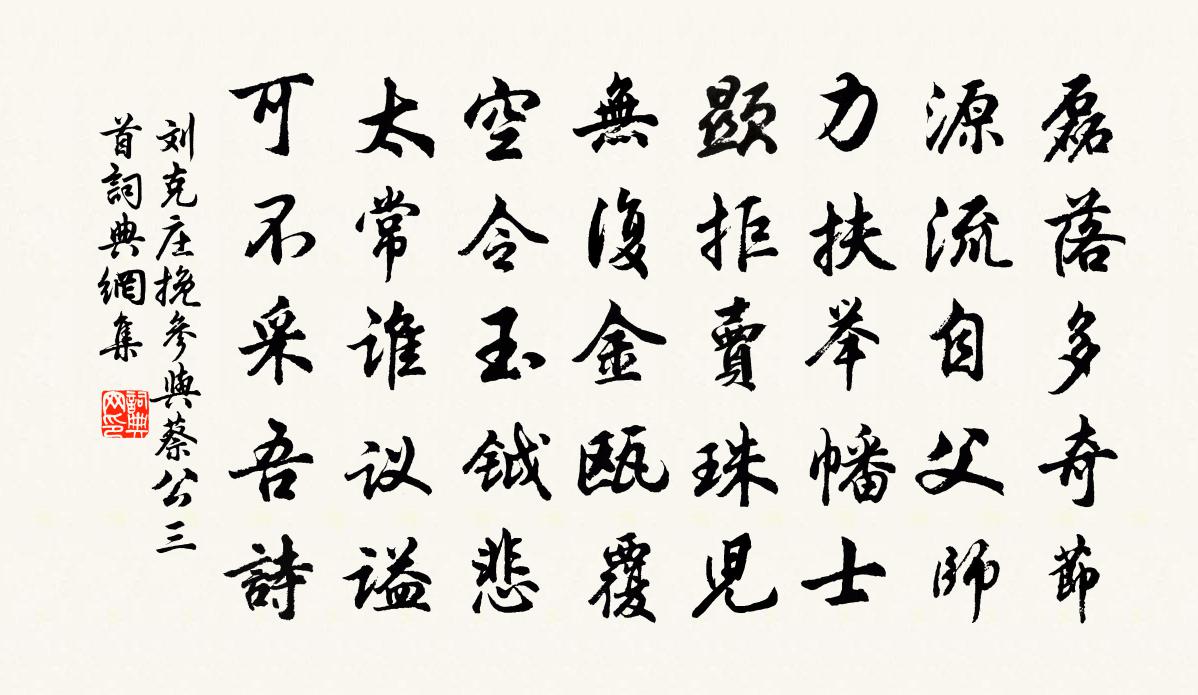 磊落多奇節
源流自父師
力扶举幡士
顯拒賣珠児
無復金甌覆
空令玉鉞悲
太常谁议谥
可不采吾詩
刘克庄挽參與蔡公三
首詞典網集
詞典网印